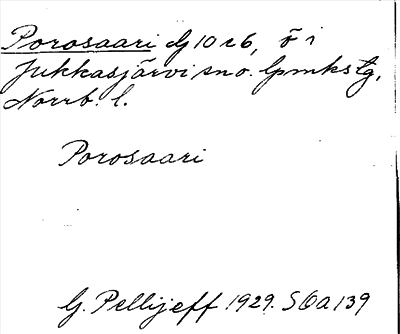 Porosaari dJ 10 c6, ö i
Jukkasjärvi sn o. lpmkstg,
Norrb. l.
Porosaari
G. Pellijeff 1929. SOA 139